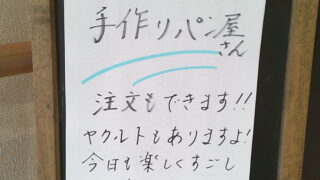 手作りパン屋
さん
注文もできます!!
ヤクルトもありますよ!
今日も楽しくすごし